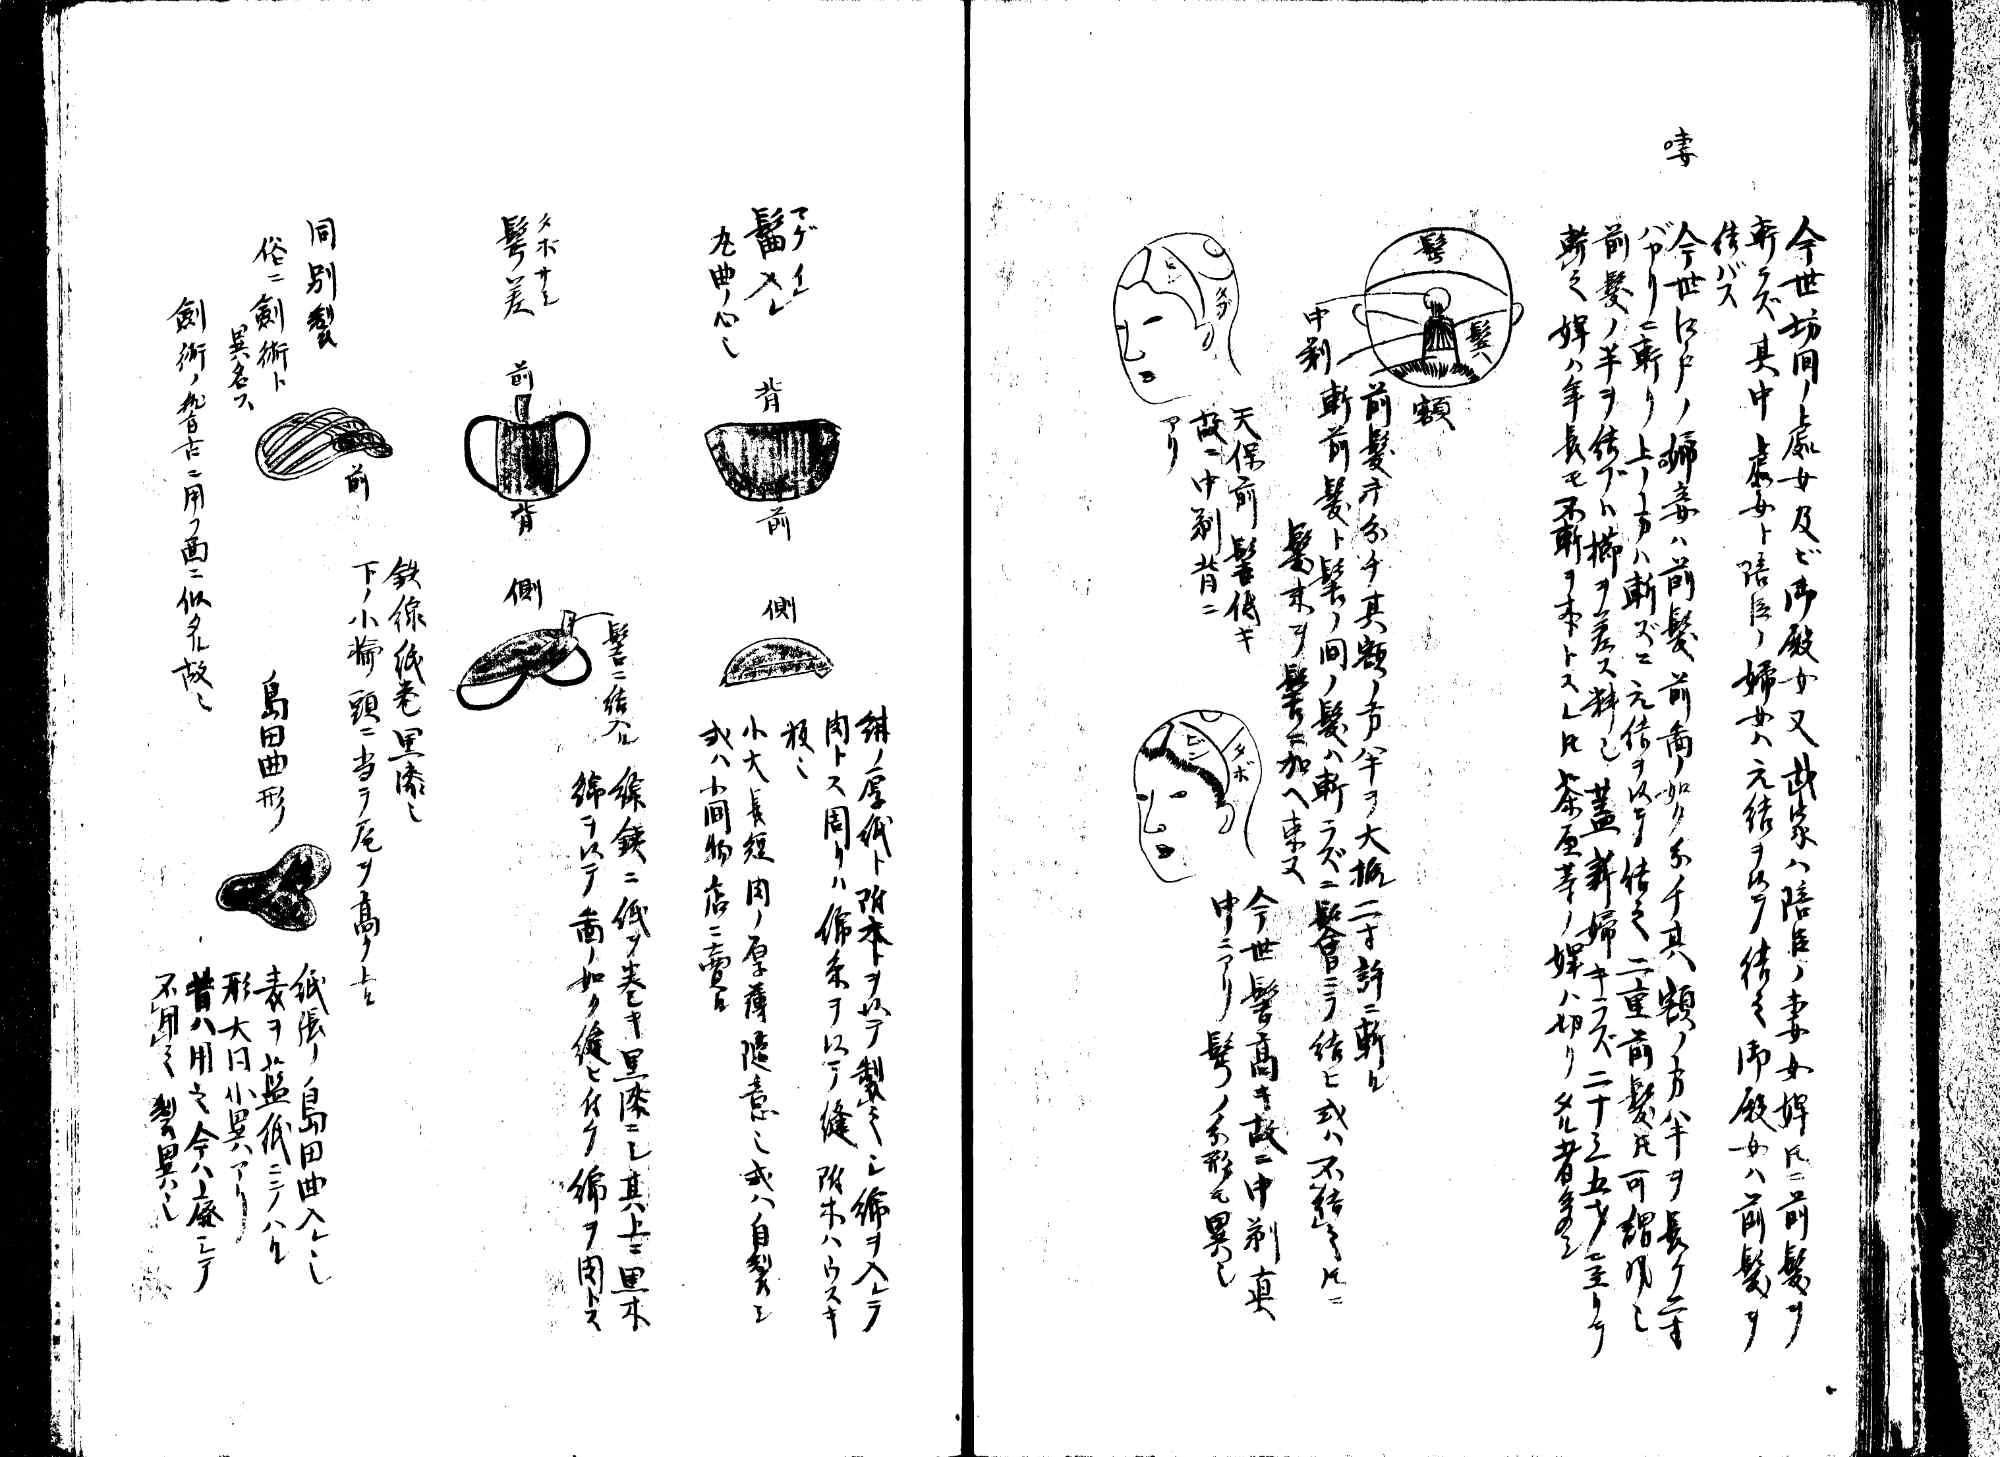 今世坊間ノ処女及ビ御殿女又武家ハ陪臣ノ妻女婢ﾄﾓニ前髪ヲ
斬ラズ其中処女ト陪臣ノ婦女ハ元結ヲ以テ結之御殿女ハ前髪ヲ
結バズ
今世江戸ノ婦妻ハ前髪前図ノ如ク分チ其額ノ方半ヲ長ケ二寸
バカリニ斬リ上ノ方ハ斬ズニ元結ヲ以テ結之二重前髪ﾄﾓ可謂風也
前髪ノ半ヲ結ブハ櫛ヲ差ス料也蓋新婦キラズ二十三五才ニ至リテ
斬之婢ハ年長モ不斬ヲ本トスレﾄﾓ茶屋等ノ婢ハ切リタル者多シ
髩
鬢
額
中剃
前髪ヲ分チ其額ノ方半ヲ大概二寸許ニ斬ル
斬前髪ト髷ノ間ノ髪ハ斬ラズニ
結ヒ或ハ不結之ﾄﾓニ
末ヲ髷ニ加ヘ束ヌ
ビン
タボ
天保前髷低キ
故ニ中剃背ニ
アリ
ビン
タボ
今世髷高キ故ニ中剃真
中ニアリ髩ノ分形モ異也
マゲイレ
髷入レ
丸曲ノ心也
背
前
側
紺ノ厚紙ト附木トヲ以テ製之也綿ヲ入レテ
肉トス周リハ綿糸ヲ以テ縫附木ハウスキ
板也
小大長短肉ノ厚薄随意也或ハ自製シ
或ハ小間物店ニ売ル
タボサシ
髩差
前
背
側
髷ニ結入ル
線鉄ニ紙ヲ巻キ黒漆ニシ其上ニ黒木
綿ヲ以テ図ノ如ク縫ヒ付ケ綿ヲ肉トス
同別製
俗ニ剣術ト
異名ス
前
鉄線紙巻黒漆也
下ノ小輪頭ニ当ラ尾ヲ高ク上ル
剣術ノ稽古ニ用フ面ニ似タル故也
島田曲形
紙張ノ島田曲入レ也
表ヲ藍紙ニテハル
形大同小異アリ
昔ハ用之今ハ廃シテ
不用之製異也